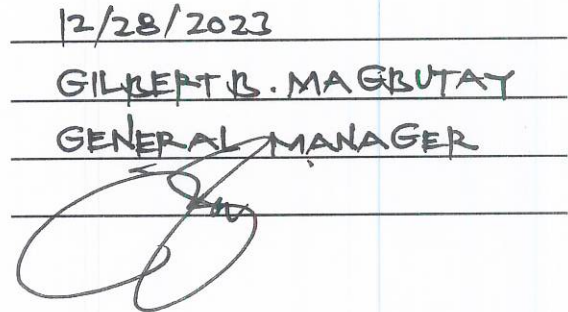 12/28/2023
GILBERT B. MAGBUTAY
GENERAL MANAGER